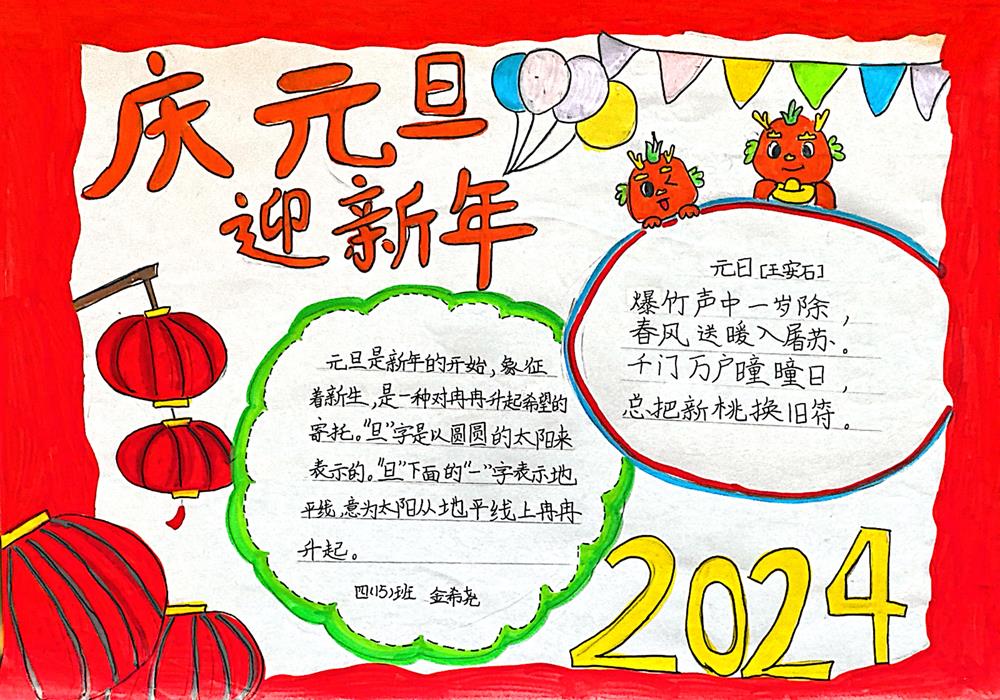 庆元旦
迎新年
元旦是新年的开始,象征
着新生,是一种对冉冉升起希望的
寄托。"旦"字是以圆圆的太阳来
表示的。"旦"下面的"一"字表示地
平线,意为太阳从地平线上冉冉
升起。
四(15)班 金希尧
元日[王安石]
爆竹声中一岁除,
春风送暖入屠苏。
千门万户曈曈日,
总把新桃换旧符。
2024